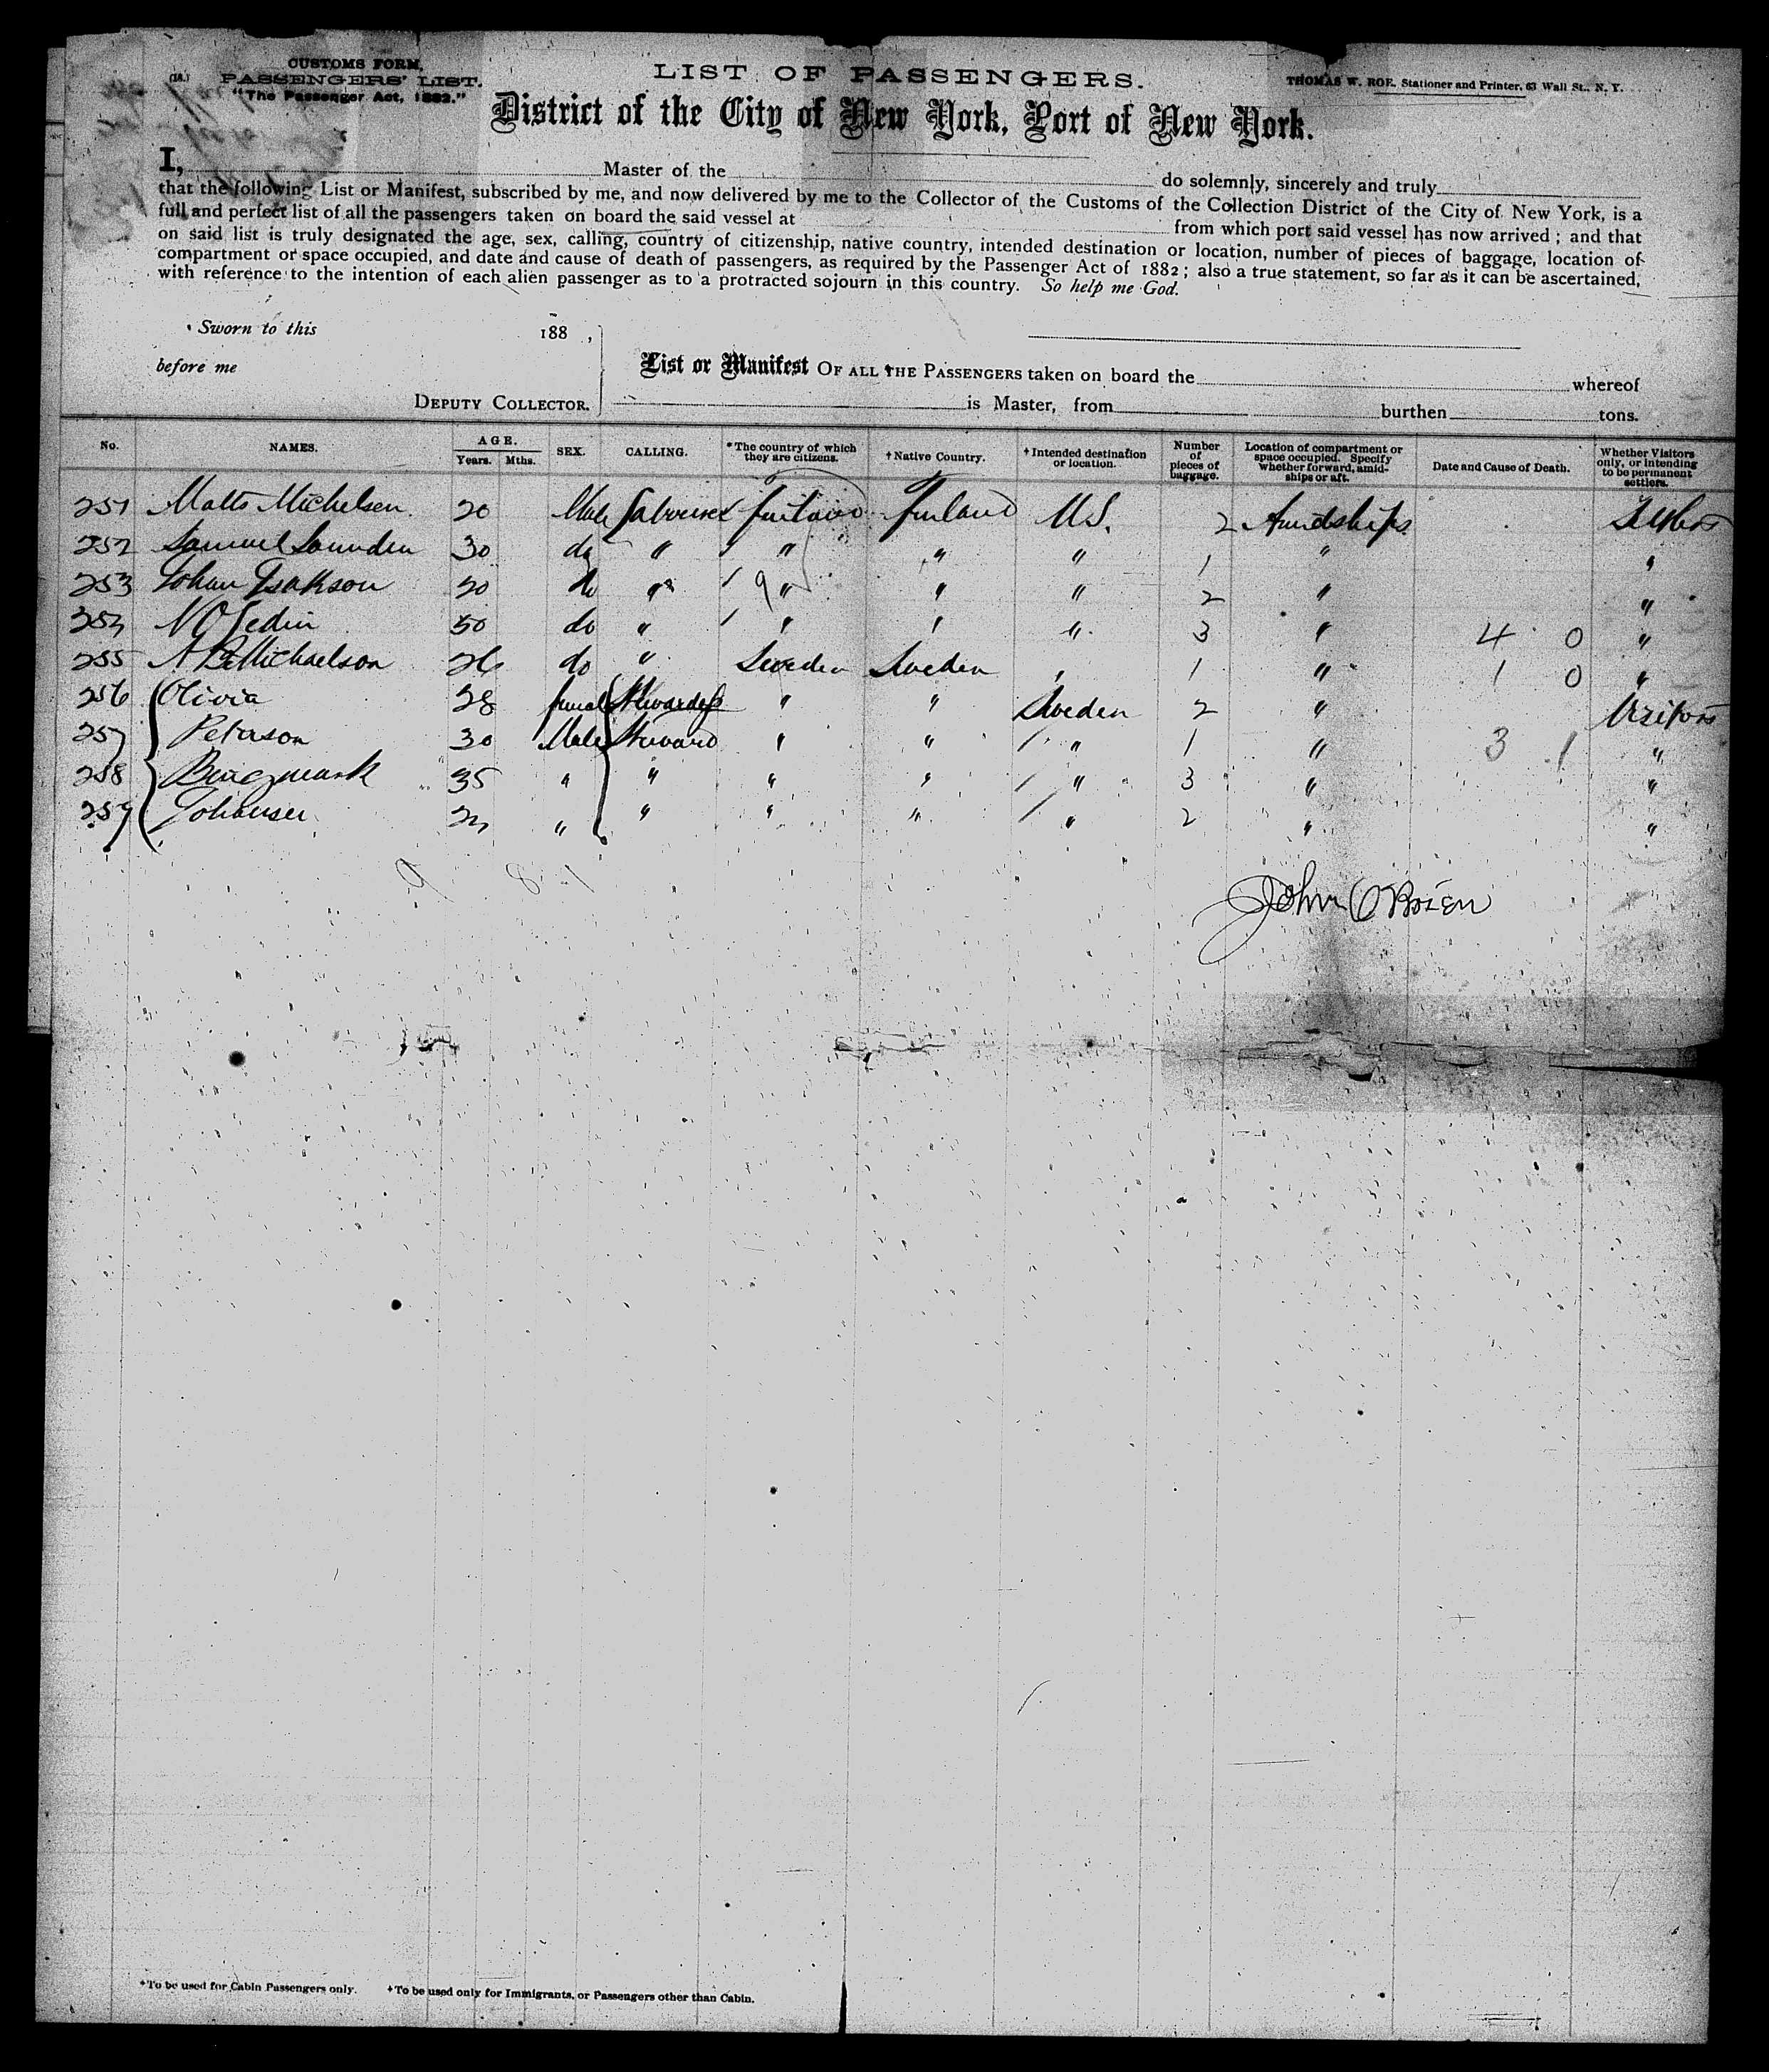 CUSTOMS FORM,
(18.) PASSENGERS' LIST.
"The Passenger Act, 1882."
LIST OF PASSENGERS.
THOMAS W. ROE, Stationer and Printer, 63 Wall St., N. Y.
District of the City of New York, Port of New York.
I, Master of the do solemnly, sincerely and truly
that the following List or Manifest, subscribed by me, and now delivered by me to the Collector of the Customs of the Collection District of the City of New York, is a
full and perfect list of all the passengers taken on board the said vessel at from which port said vessel has now arrived; and that
on said list is truly designated the age, sex, calling, country of citizenship, native country, intended destination or location, number of pieces of baggage, location of
compartment or space occupied, and date and cause of death of passengers, as required by the Passenger Act of 1882; also a true statement, so far as it can be ascertained,
with reference to the intention of each alien passenger as to a protracted sojourn in this country. So help me God.
Sworn to this 188 ,
before me
DEPUTY COLLECTOR.
List or Manifest OF ALL THE PASSENGERS taken on board the whereof
is Master, from burthen tons.
No. NAMES. AGE. Years. Mths. SEX. CALLING. *The country of which they are citizens. †Native Country. †Intended destination or location. Number of pieces of baggage. Location of compartment or space occupied. Specify whether forward, amidships or aft. Date and Cause of Death. Whether Visitors only, or intending to be permanent settlers.
251 Matts Michelsen 20 Male Labourer Finland Finland U.S. 2 Amidships Settlers
252 Samuel 30 do " " " " 1 " "
253 Johan Isakson 20 do " " " " 2 " "
254 N O 50 do " " " " 3 " 4 0 "
255 A B Michaelson 26 do " Sweden Sweden " 1 " 1 0 "
256 Olivia 28 female Stewardess " " Sweden 2 " Visitors
257 Peterson 30 Male Steward " " " 1 " 3 1 "
258 35 " " " " " 3 " "
259 Johanser 24 " " " " " 2 " "
9 8 1
John O'Brien
*To be used for Cabin Passengers only. †To be used only for Immigrants, or Passengers other than Cabin.